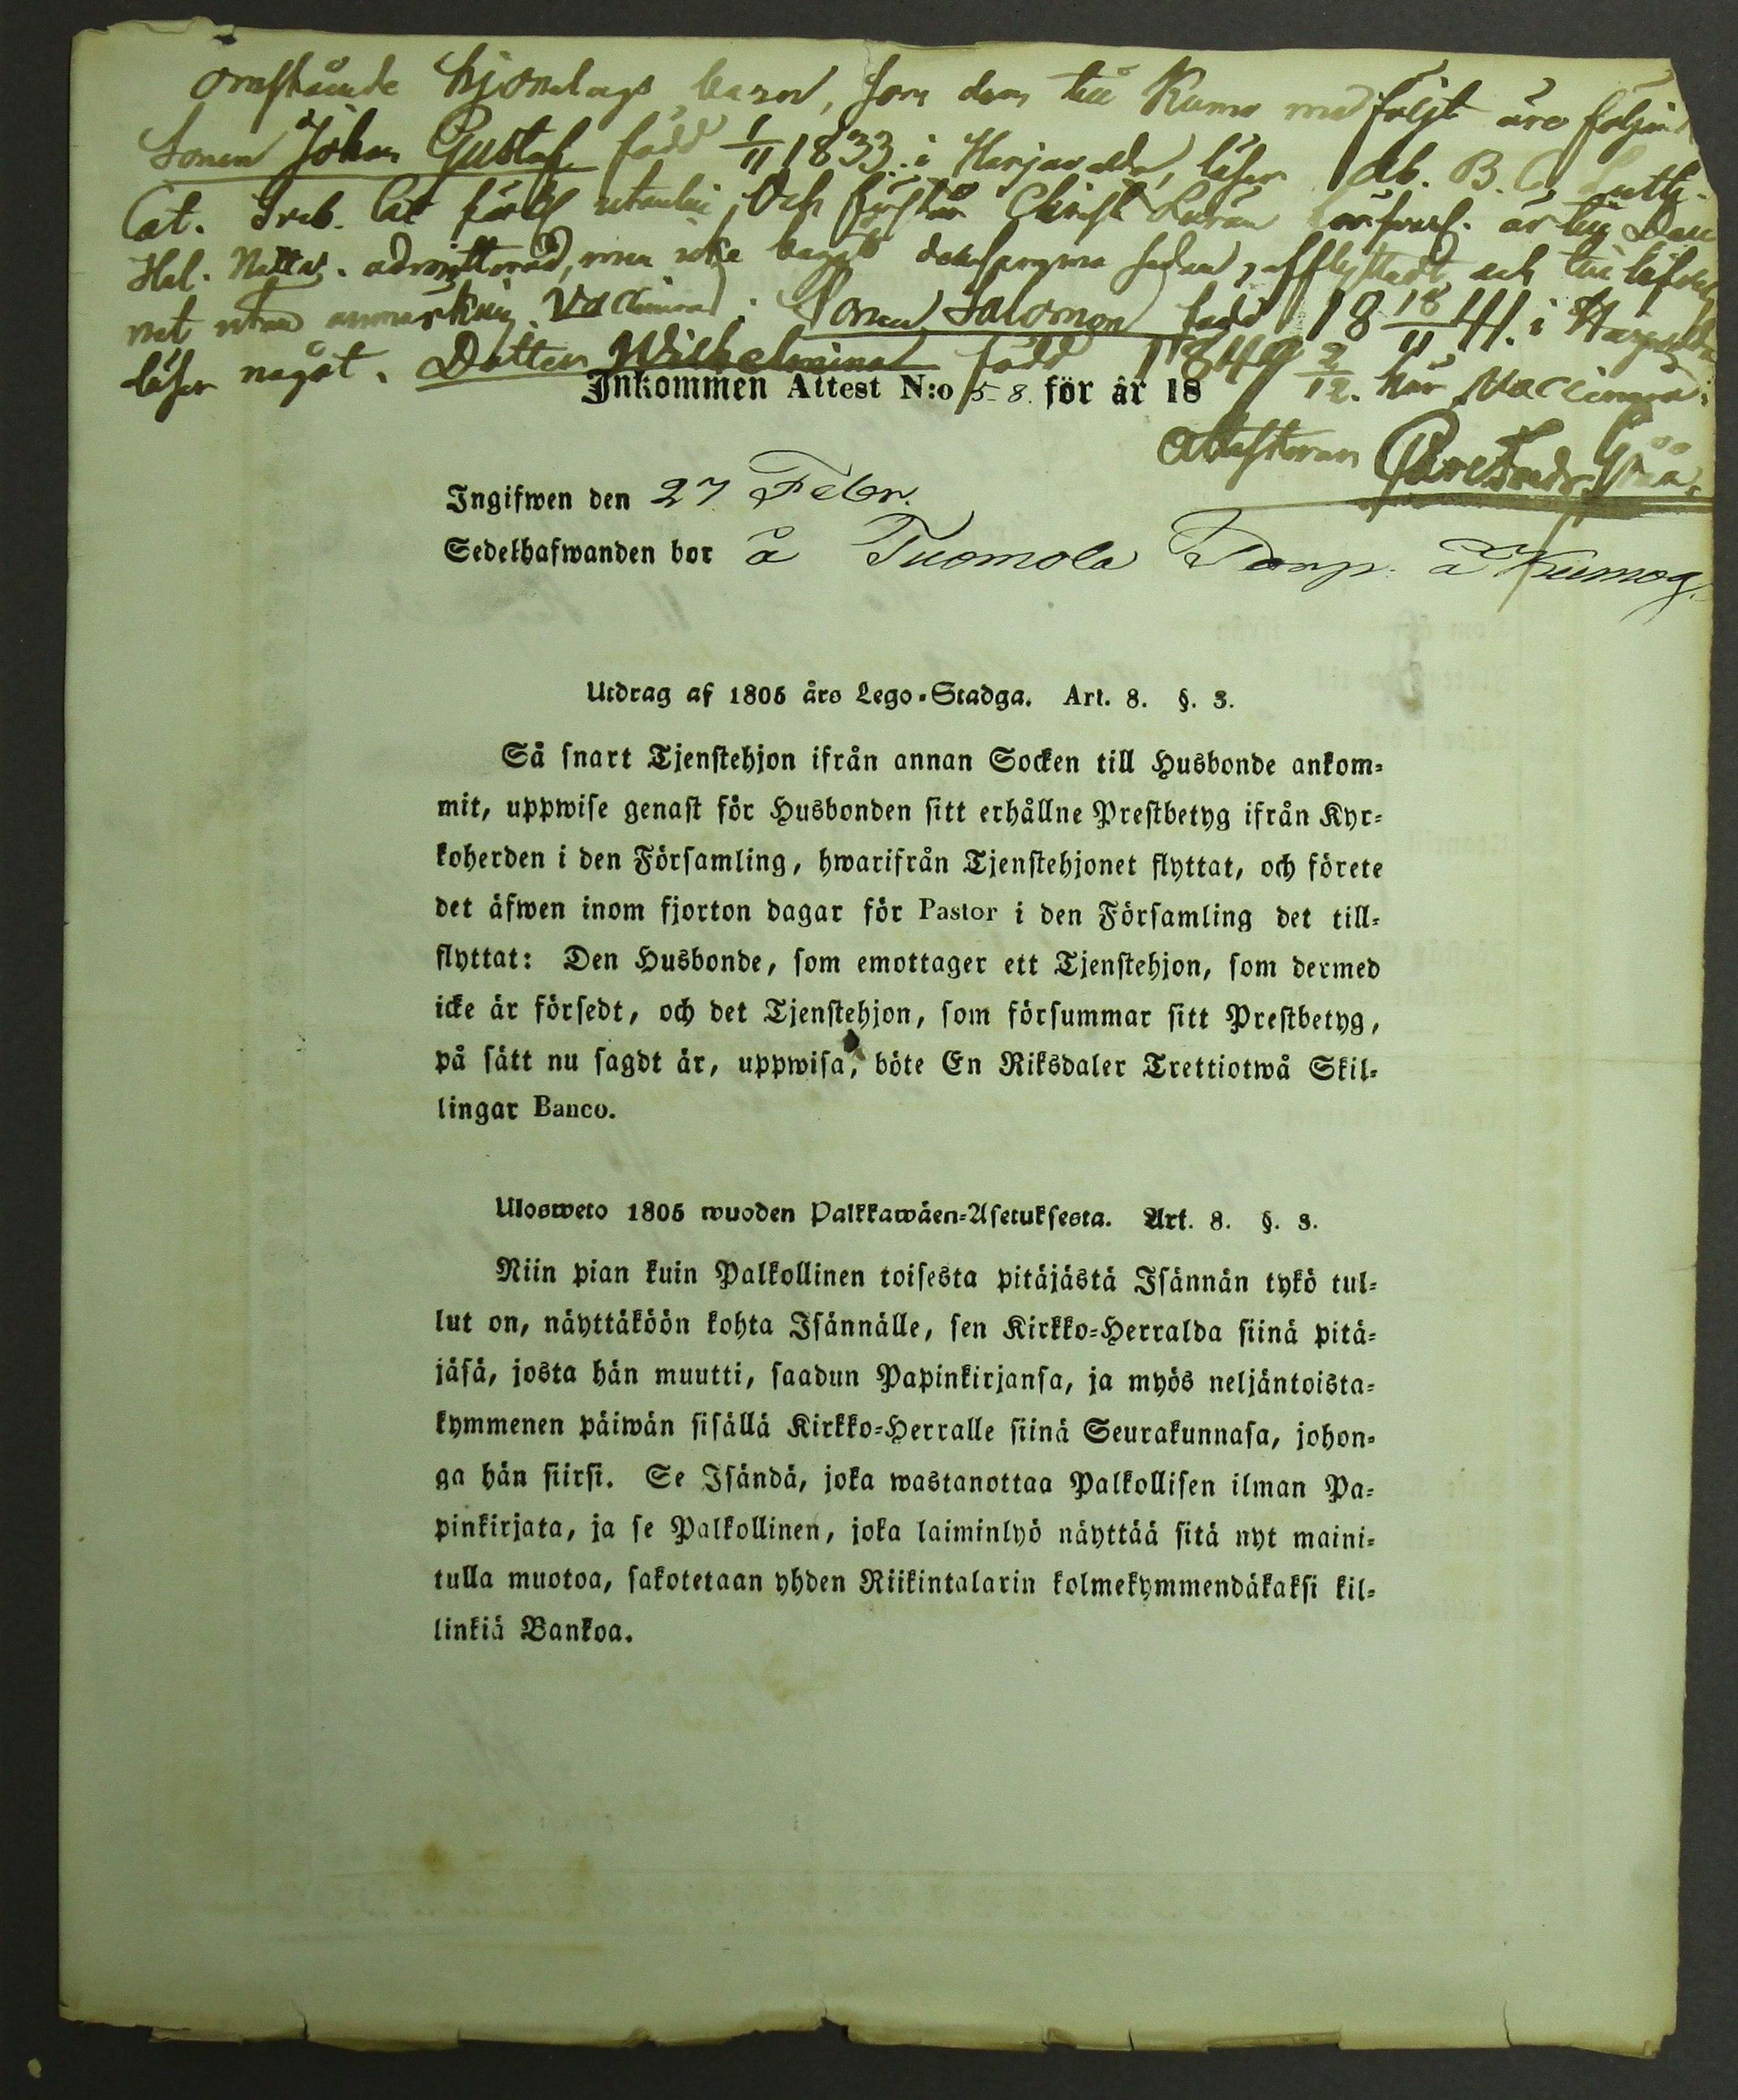 omstående hjonelags barn, som dem till Kumo medföljt äro följande
Sonen Johan Gustaf född 1/11 1833 i Harjavalda, läser Ab. B. C, Luth.
Cat. Sveb. Cat förkl utanlä, Och förstår Christ Läran är till Den
Hel. Nattv. admitterad, men icke begått densamma sedan, afflyttadt och till lefver
net utan anmärkning Vaccinerad; Sonen Salomon född 18 18/11 41. i Harjavalda
läser något. Dottren Wilhelmina född 1849 2/12. har Vaccinerad.
Inkommen Attest N:o 58. för år 18
Attesterar
Ingifwen den 27 Febr.
Sedelhafwanden bor å Tuomola Torp. å Kumog.
Utdrag af 1805 års Lego-Stadga. Art. 8. §. 3.
Så snart Tjenstehjon ifrån annan Socken till Husbonde ankom-
mit, uppwise genast för Husbonden sitt erhållne Prestbetyg ifrån Kyr-
koherden i den Församling, hwarifrån Tjenstehjonet flyttat, och förete
det äfwen inom fjorton dagar för Pastor i den Församling det till-
flyttat: Den Husbonde, som emottager ett Tjenstehjon, som dermed
icke är försedt, och det Tjenstehjon, som försummar sitt Prestbetyg,
på sätt nu sagdt är, uppwisa, böte En Riksdaler Trettiotwå Skil-
lingar Banco.
Ulosweto 1805 wuoden Palkkawäen-Asetuksesta. Art. 8. §. 3.
Niin pian kuin Palkollinen toisesta pitäjästä Isännän tykö tul-
lut on, näyttäköön kohta Isännälle, sen Kirkko-Herralda siinä pitä-
jäsä, josta hän muutti, saadun Papinkirjansa, ja myös neljäntoista-
kymmenen päiwän sisällä Kirkko-Herralle siinä Seurakunnasa, johon-
ga hän siirsi. Se Isändä, joka wastanottaa Palkollisen ilman Pa-
pinkirjata, ja se Palkollinen, joka laiminlyö näyttää sitä nyt maini-
tulla muotoa, sakotetaan yhden Riikintalarin kolmekymmendäkaksi kil-
linkiä Bankoa.